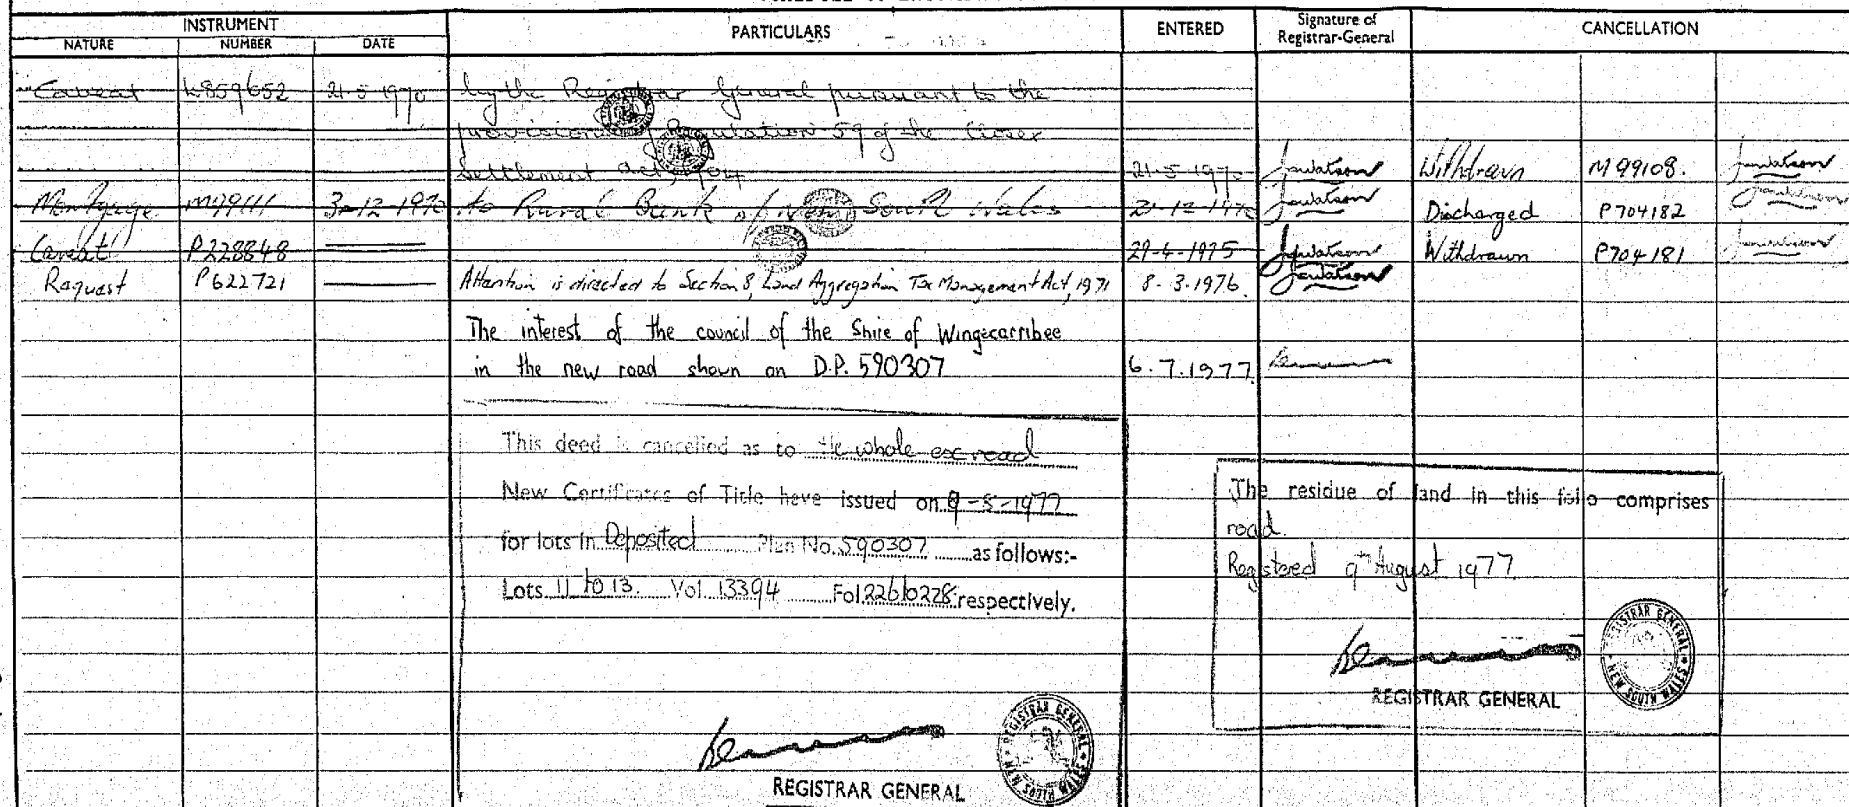 INSTRUMENT
PARTICULARS
ENTERED
Signature of
Registrar-General
CANCELLATION
NATURE NUMBER DATE
Caveat K859652 21-5-1970 by the Registrar General pursuant to the
provisions of Regulation 59 of the Closer
Settlement Act, 1904 21-5-1970 Jawatson Withdrawn M99108. Jawatson
Mortgage M99111 3-12-1970 to Rural Bank of New South Wales 21-12-1970 Jawatson Discharged P704182 Jawatson
Caveat P228848 29-4-1975 Jawatson Withdrawn P704181 Jawatson
Request P622721 Attention is directed to Section 8, Land Aggregation Tax Management Act, 1971 8.3.1976. Jawatson
The interest of the council of the Shire of Wingecarribee
in the new road shown on D.P. 590307 6.7.1977
This deed is cancelled as to the whole exc road
New Certificates of Title have issued on 9-8-1977
for lots in Deposited Plan No. 590307 as follows:-
Lots 11 to 13. Vol 13394 Fol 226 to 228 respectively.
REGISTRAR GENERAL
REGISTRAR GENERAL NEW SOUTH WALES
The residue of land in this folio comprises
road.
Registered 9th August 1977
REGISTRAR GENERAL
REGISTRAR GENERAL NEW SOUTH WALES